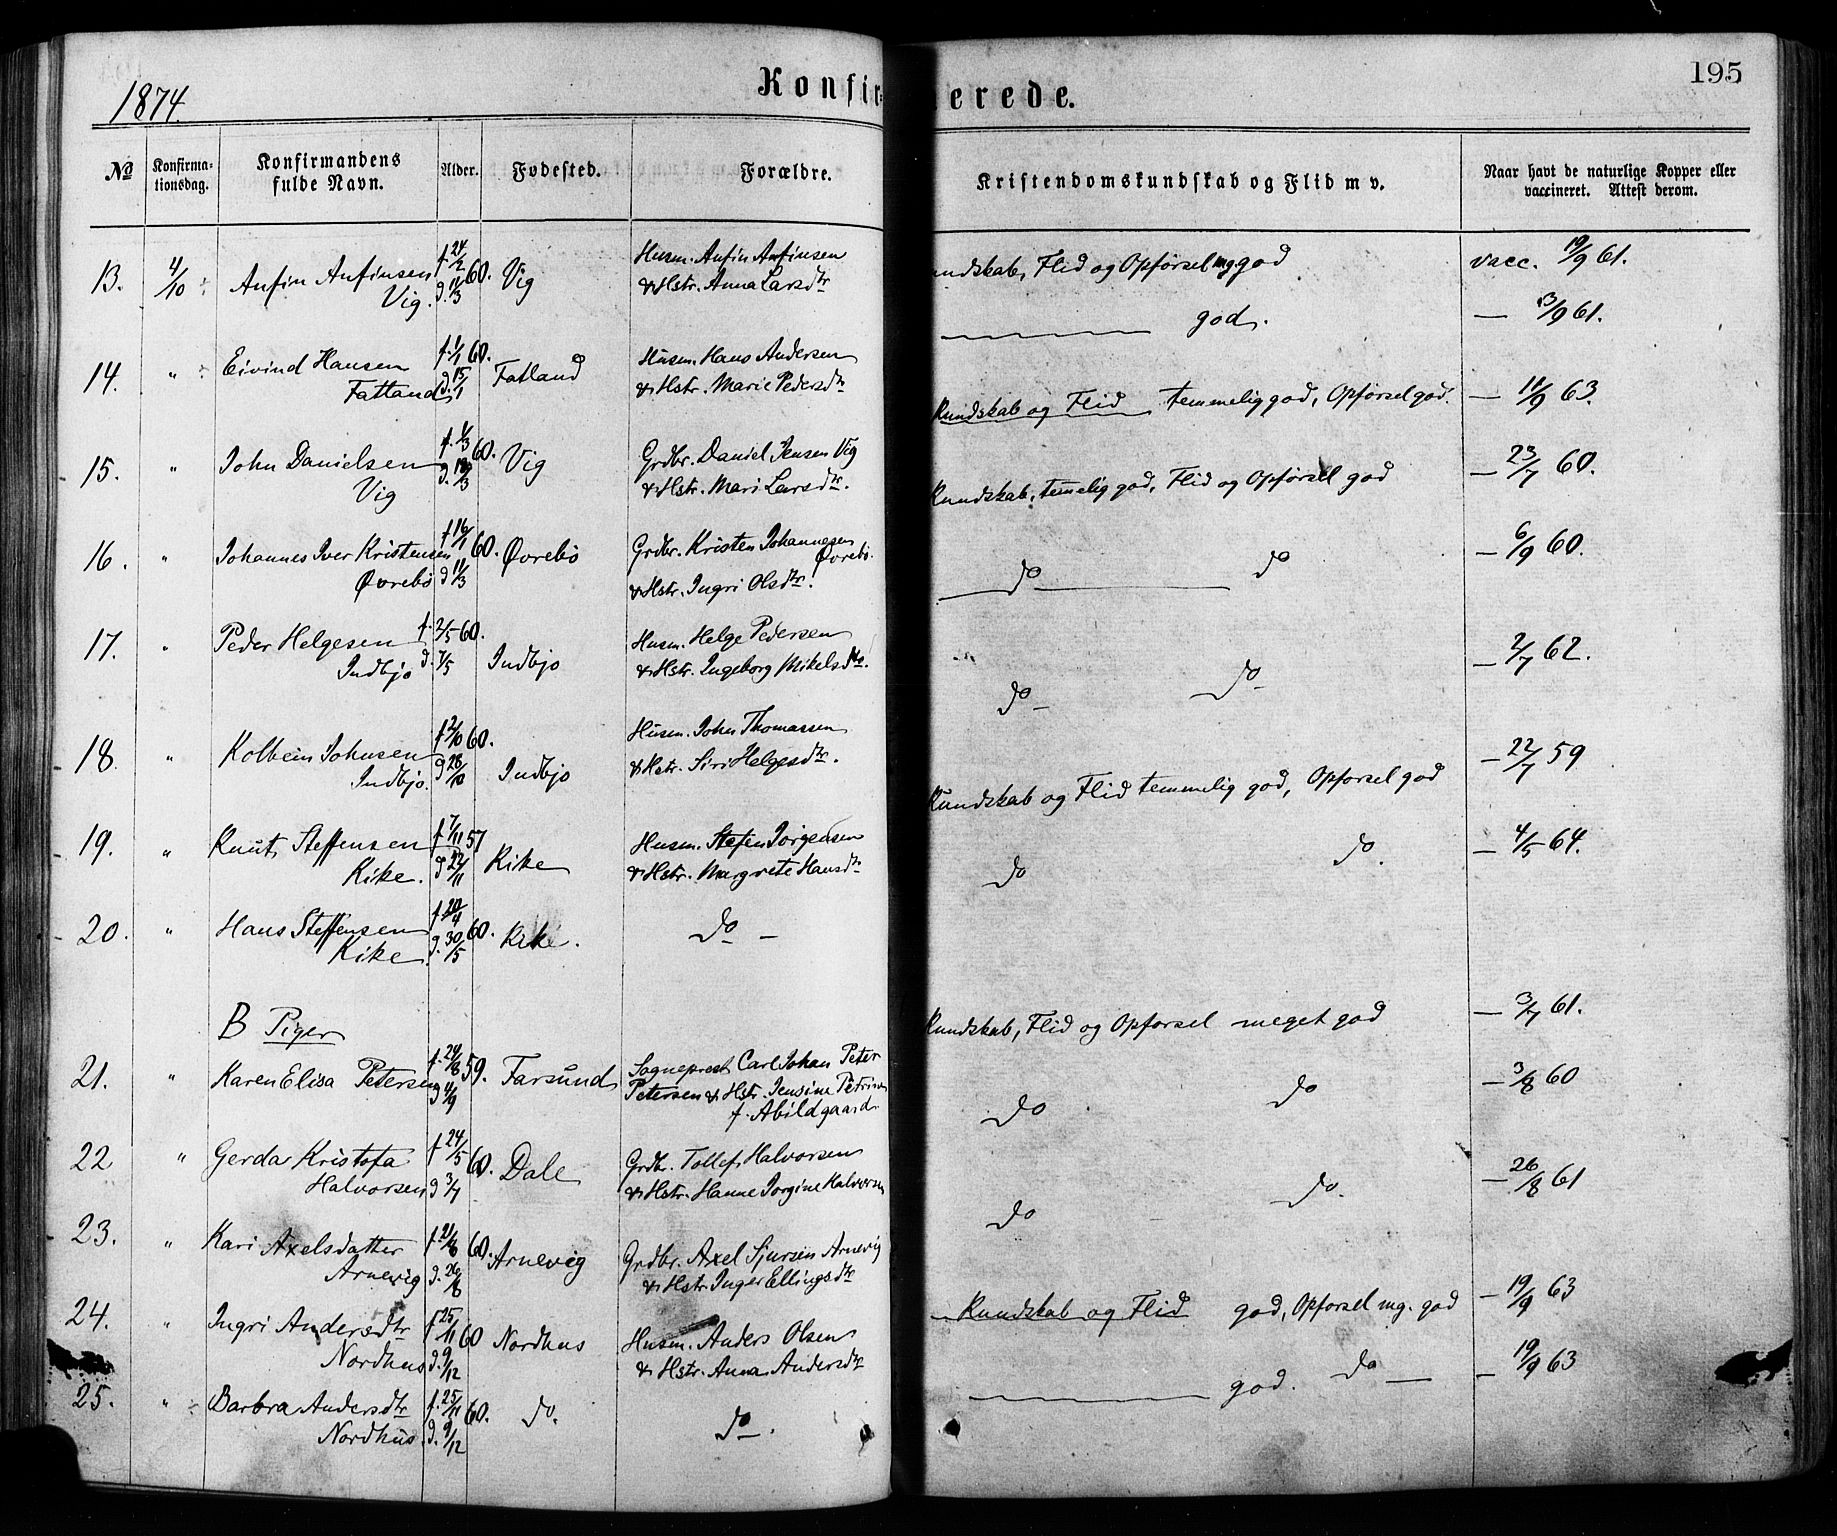 1874.
Konfirmerede.
195
No
Konfirmationsdag.
Konfirmandens fulde Navn.
Alder.
Fødested.
Forældre.
Kristendomskundskab og Flid m v.
Naar havt de naturlige Kopper eller vaccineret. Attest derom.
13. 4/10 Anfin Anfinsen f. 24/2 60. Vig Husm. Anfin Anfinsen
Vig. d. 11/3 & Hstr. Anna Larsdtr
Kundskab, Flid og Opførsel mg. god vacc. 19/9 61.
14. " Eivind Hansen f. 1/1 60. Fatland Husm. Hans Andersen
Fatland d. 15/1 & Hstr. Marie Pedersdtr
god. — 3/9 61.
15. " John Danielsen f. 1/3 60. Vig Grdbr. Daniel Jensen Vig
Vig d. 18/3 & Hstr. Mari Larsdtr.
Kundskab og Flid temmelig god, Opførsel god. — 11/9 63.
16. " Johannes Iver Kristensen f 16/1 60. Øvrebø Grdbr. Kristen Johannesen Øvrebø.
Øvrebø d 11/3 & Hstr. Ingri Olsdtr.
Kundskab, temelig god, Flid og Opførsel god — 23/7 60.
17. " Peder Helgesen f. 2/5 60. Indbjo Husm. Helge Pedersen
Indbjo d. 7/5 & Hstr. Ingeborg Mikelsdtr.
do do — 6/9 60.
18. " Kolbein Johnsen f 2/10 60. Indbjo Husm. John Thomassen
Indbjo. d 28/10 & Hstr. Siri Helgesdtr.
do — do — — 2/7 62.
19. " Knut Steffensen f 7/11 57 Kike Husm. Stefen Jørgensen
Kike. d 22/11 & Hstr. Margrete Hansdtr
Kundskab og Flid temmelig god, Opførsel god — 22/7 59
20. " Hans Steffensen f 20/4 60. Kike. do —
Kike. d. 30/5
do do. — 4/5 64.
B Piger
21. " Karen Elisa Petersen f. 24/8 59. Farsund Sogneprest Carl Johan Peter
d 4/9 Petersen & Hstr. Jensine Petrine
f. Abildgaard
Kundskab, Flid og Opførsel meget god — 3/7 61.
22 " Gerda Kristofa f 24/5 60. Dale Grdbr. Tollef Halvorsen
Halvorsen d 3/7 & Hstr. Hanne Jorgine Halvorsen
do do — 3/8 60
23. " Kari Axelsdatter f. 21/8 60. Arnevig Grdbr. Axel Sjursen Arnevig
Arnevig d. 26/8 & Hstr. Inger Ellingsdtr
do do. — 26/8 61
24. " Ingri Andersdtr f 25/11 60 Nordhus Husm. Anders Olsen
Nordhus d. 9/12 & Hstr. Anna Andersdtr
Kundskab og Flid god, Opførsel mg. god — 19/9 63
25. " Barbra Andersdtr f. 25/11 60. do. do.
Nordhus. d. 9/12
god. do — — 19/9 63